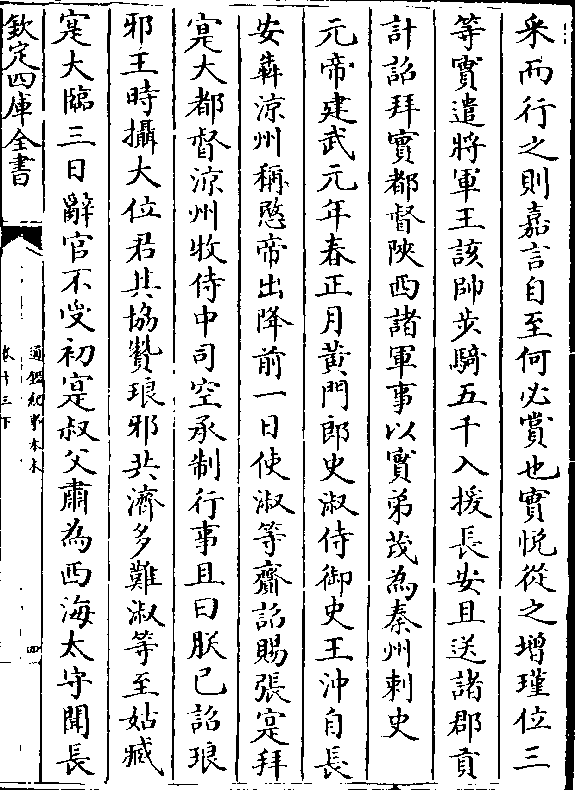 采而行之則嘉言自至何必賞也寔悦從之增瑾位三
等寔遣將軍王該帥步騎五千入援長安且送諸郡貢
計詔拜寔都督陜西諸軍事以寔弟茂為秦州刺史
元帝建武元年春正月黄門郎史淑侍御史王沖自長
安犇涼州稱愍帝出降前一日使淑等齎詔賜張寔拜
寔大都督涼州牧侍中司空承制行事且曰朕已詔琅
邪王時攝大位君其協贊琅邪共濟多難淑等至姑臧
寔大臨三日辭官不受初寔叔父肅為西海太守聞長
欽定四庫全書
通鑑紀事本末
卷十三下
四